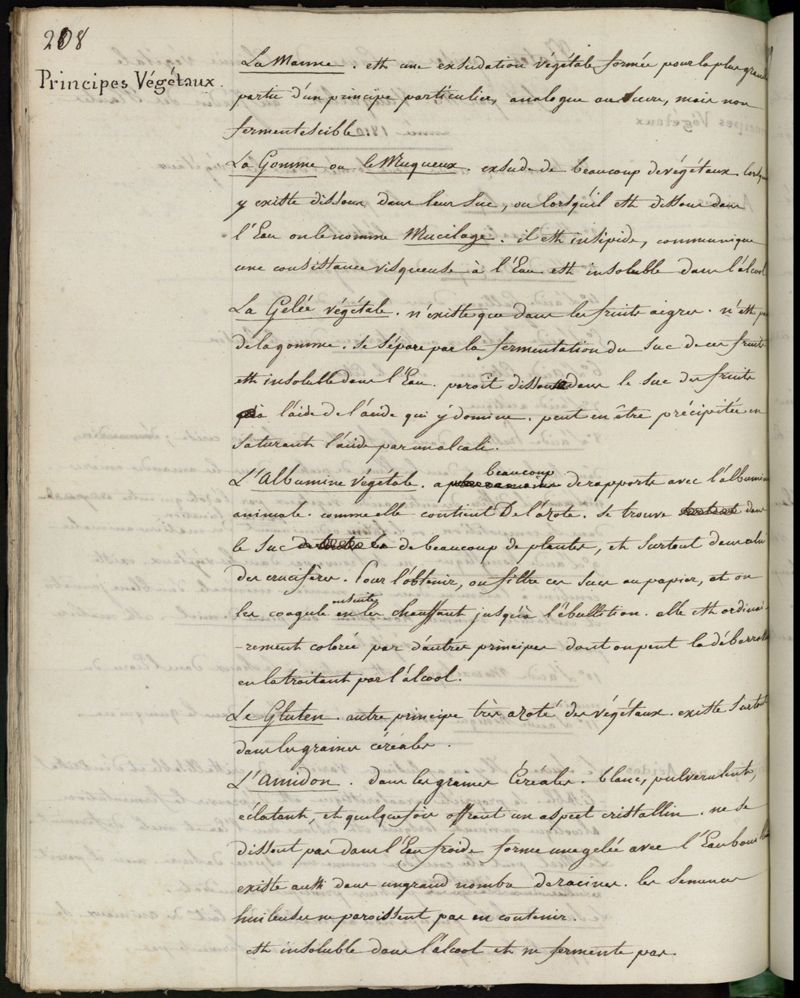 208
Principes Végétaux.
La Manne. est une exsudation végétale formée pour la plus grande
partie d'un principe particulier, analogue au Sucre, mais non
fermentescible.
La Gomme ou le Muqueux. exsude de beaucoup de végétaux. lorsque
y existe dissous dans leur suc, ou lorsqu'il est dissous dans
l'Eau on le nomme Mucilage. il est insipide, communique
une consistance visqueuse à l'Eau est insoluble dans l'alcool
La Gelée végétale. n'existe que dans les fruits aigres. n'est pas
de la gomme. se sépare par la fermentation du Suc de ces fruits
est insoluble dans l'Eau. paroît dissoute dans le suc des fruits
à l'aide de l'acide qui y domine. peut en être précipitée en
saturant l'acide par un alcali.
L'Albumine végétale. a beaucoup de rapports avec l'albumine
animale. comme elle contient De l'azote. se trouve dans
le suc de beaucoup de plantes, et surtout dans celui
des crucifères. Pour l'obtenir, on filtre ces sucs au papier, et on
les coagule ensuite en les chauffant jusqu'à l'ébullition. elle est ordinai-
-rement colorée par d'autres principes dont on peut la débarrasser
en la traitant par l'alcool.
Le Gluten. autre principe très azoté des végétaux. existe surtout
dans les graines céréales.
L'Amidon. dans les graines Céréales. blanc, pulvérulent,
éclatant, et quelquefois offrant un aspect cristallin. ne se
dissout pas dans l'Eau froide forme une gelée avec l'Eau
existe aussi dans un grand nombre de racines. les Semences
huileuses ne paroissent pas en contenir.
est insoluble dans l'alcool et ne fermente pas.